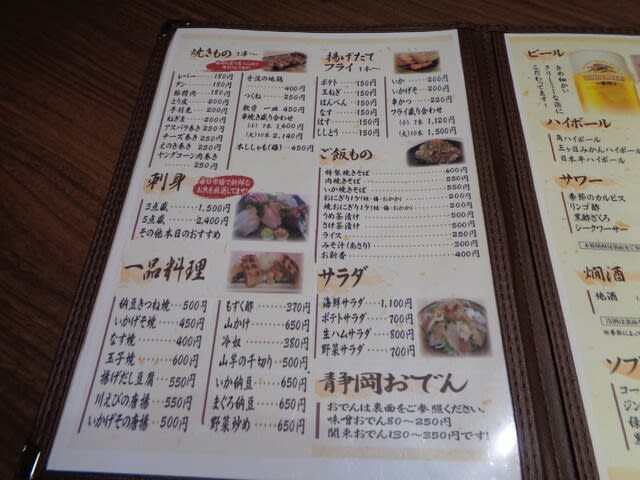 焼きもの 1本〜
レバー 180円
タン 180円
豚精肉 180円
とり皮 200円
手羽先 200円
ねぎま 200円
アスパラ巻き 250円
チーズ巻き 250円
えのき巻き 250円
ヤングコーン肉巻き
250円
丹波の地鶏
400円
つくね 250円
軟骨 一皿 450円
串焼き盛り合わせ
(小)7本 1,600円
(大)10本 2,140円
本ししゃも(雄) 650円
揚げたて
フライ 1本〜
ポテト 150円
玉ねぎ 150円
はんぺん 150円
なす 150円
はす 150円
ししとう 150円
いか 200円
いかげそ 200円
串かつ 220円
フライ盛り合わせ
(小)7本 1,120円
(大)10本 1,500円
刺身
毎日市場で新鮮な
お魚を厳選してます!
3点蔵 1,500円
5点蔵 2,400円
その他本日のおすすめ
ご飯もの
特製焼きそば 600円
肉焼きそば 550円
いか焼きそば 550円
おにぎり1ケ(鮭・梅・おかか) 200円
焼おにぎり1ケ(鮭・梅・おかか) 200円
うめ茶漬け 500円
さけ茶漬け 500円
ライス 250円
みそ汁(あさり) 300円
お新香 400円
一品料理
納豆きつね焼 500円
いかげそ焼 450円
なす焼 400円
玉子焼 600円
揚げだし豆腐 550円
川えびの唐揚 550円
いかげその唐揚 550円
もずく酢 370円
山かけ 650円
冷奴 380円
山芋の千切り 500円
いか納豆 650円
まぐろ納豆 650円
野菜炒め 650円
サラダ
海鮮サラダ 1,100円
ポテトサラダ 700円
生ハムサラダ 800円
野菜サラダ 700円
静岡おでん
おでんは裏面をご参照ください。
味噌おでん80〜250円
関東おでん130〜350円です!
ビール
きめ細かい、
クリーミーな泡に
こだわってます!
ハイボール
角ハイボール
三ヶ日みかんハイボール
日本平ハイボール
サワー
季節のカルピス
リンゴ酢
黒酢ざくろ
シークワーサー
燗酒
地酒
ソフ
コー
ジン